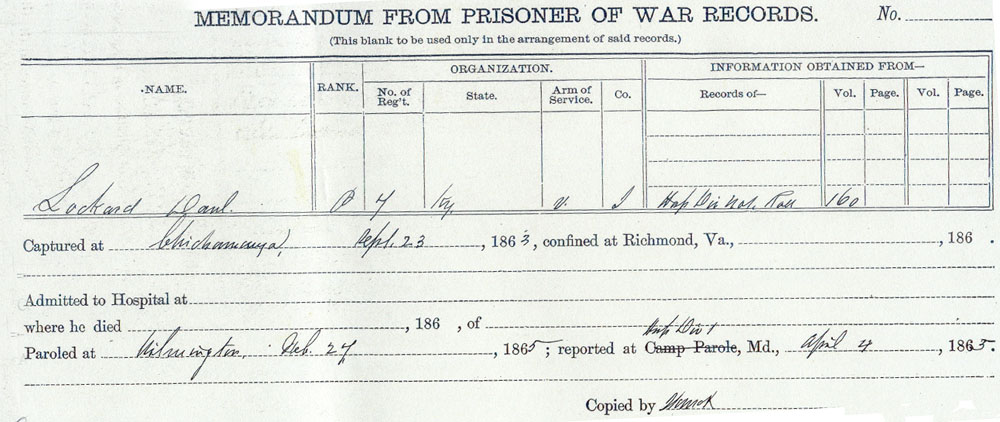 MEMORANDUM FROM PRISONER OF WAR RECORDS. No.
(This blank to be used only in the arrangement of said records.)
NAME. RANK. ORGANIZATION. INFORMATION OBTAINED FROM—
No. of Reg't. State. Arm of Service. Co. Records of— Vol. Page. Vol. Page.
Lockard P 7 Ky. v. I Hosp Div No1. Roll 160
Captured at Chickamauga, Sept. 23, 1863, confined at Richmond, Va., , 186 .
Admitted to Hospital at
where he died , 186 , of
Hosp Div 1
Paroled at Wilmington, Feb. 27, 1865; reported at Camp Parole, Md., April 4, 1865.
Copied by